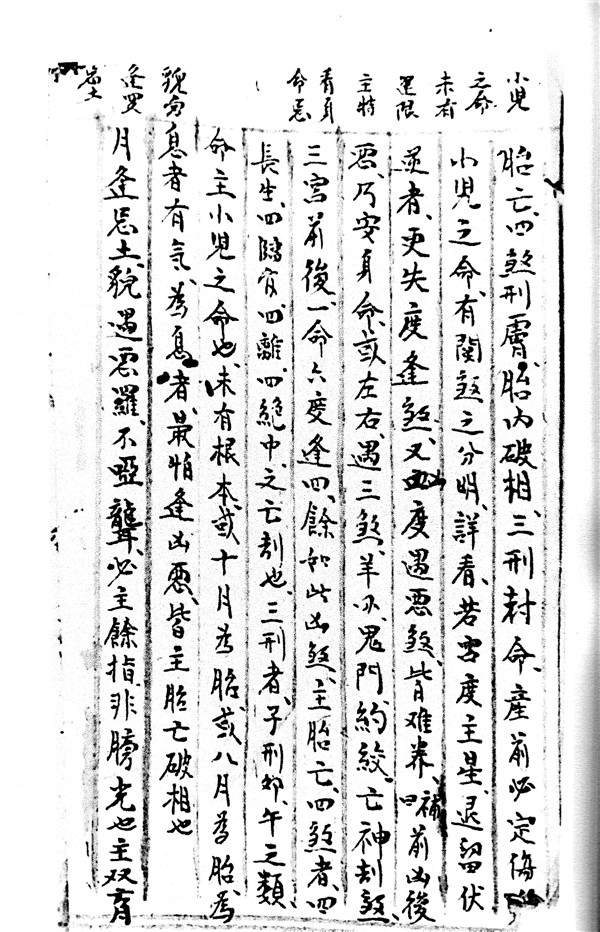 小児
之命
未有
運限
主特
看身
命忌
貌分
逢罗
忌土
胎亡、四煞刑膚、胎内破相、三刑封命、產前必定傷
小児之命、有関煞之分明、詳看、若宫度主星、退留伏
逆者、更失度逢煞、又度遇恶煞、皆难养、補曰前凶後
恶、乃安身命、或左右、遇三煞、羊刃、鬼門、約絞、亡神刦煞、
三宮前後、一命六度逢四餘、如此凶煞、主胎亡、四煞者、四
長生、四臨官、四離、四絶中、之亡刦也、三刑者、子刑卯、午之類、
命主小児之命也、未有根本、或十月為胎、或八月為胎、為
息者有氣、為息者、最怕逢凶恶、皆主胎亡破相也
月逢忌土、貌遇恶羅、不啞聾、必主餘指、非膀光也、主双育